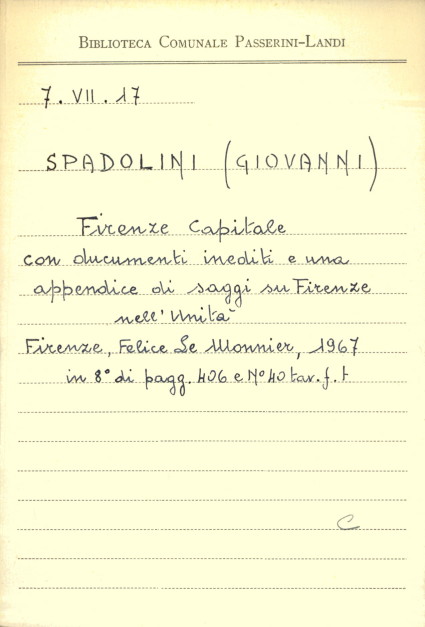 BIBLIOTECA COMUNALE PASSERINI-LANDI
7. VII. 17
SPADOLINI (GIOVANNI)
Firenze Capitale
con documenti inediti e una
appendice di saggi su Firenze
nell'Unità
Firenze, Felice Le Monnier, 1967
in 8° di pagg. 406 e N° 40 tav. f. t
C